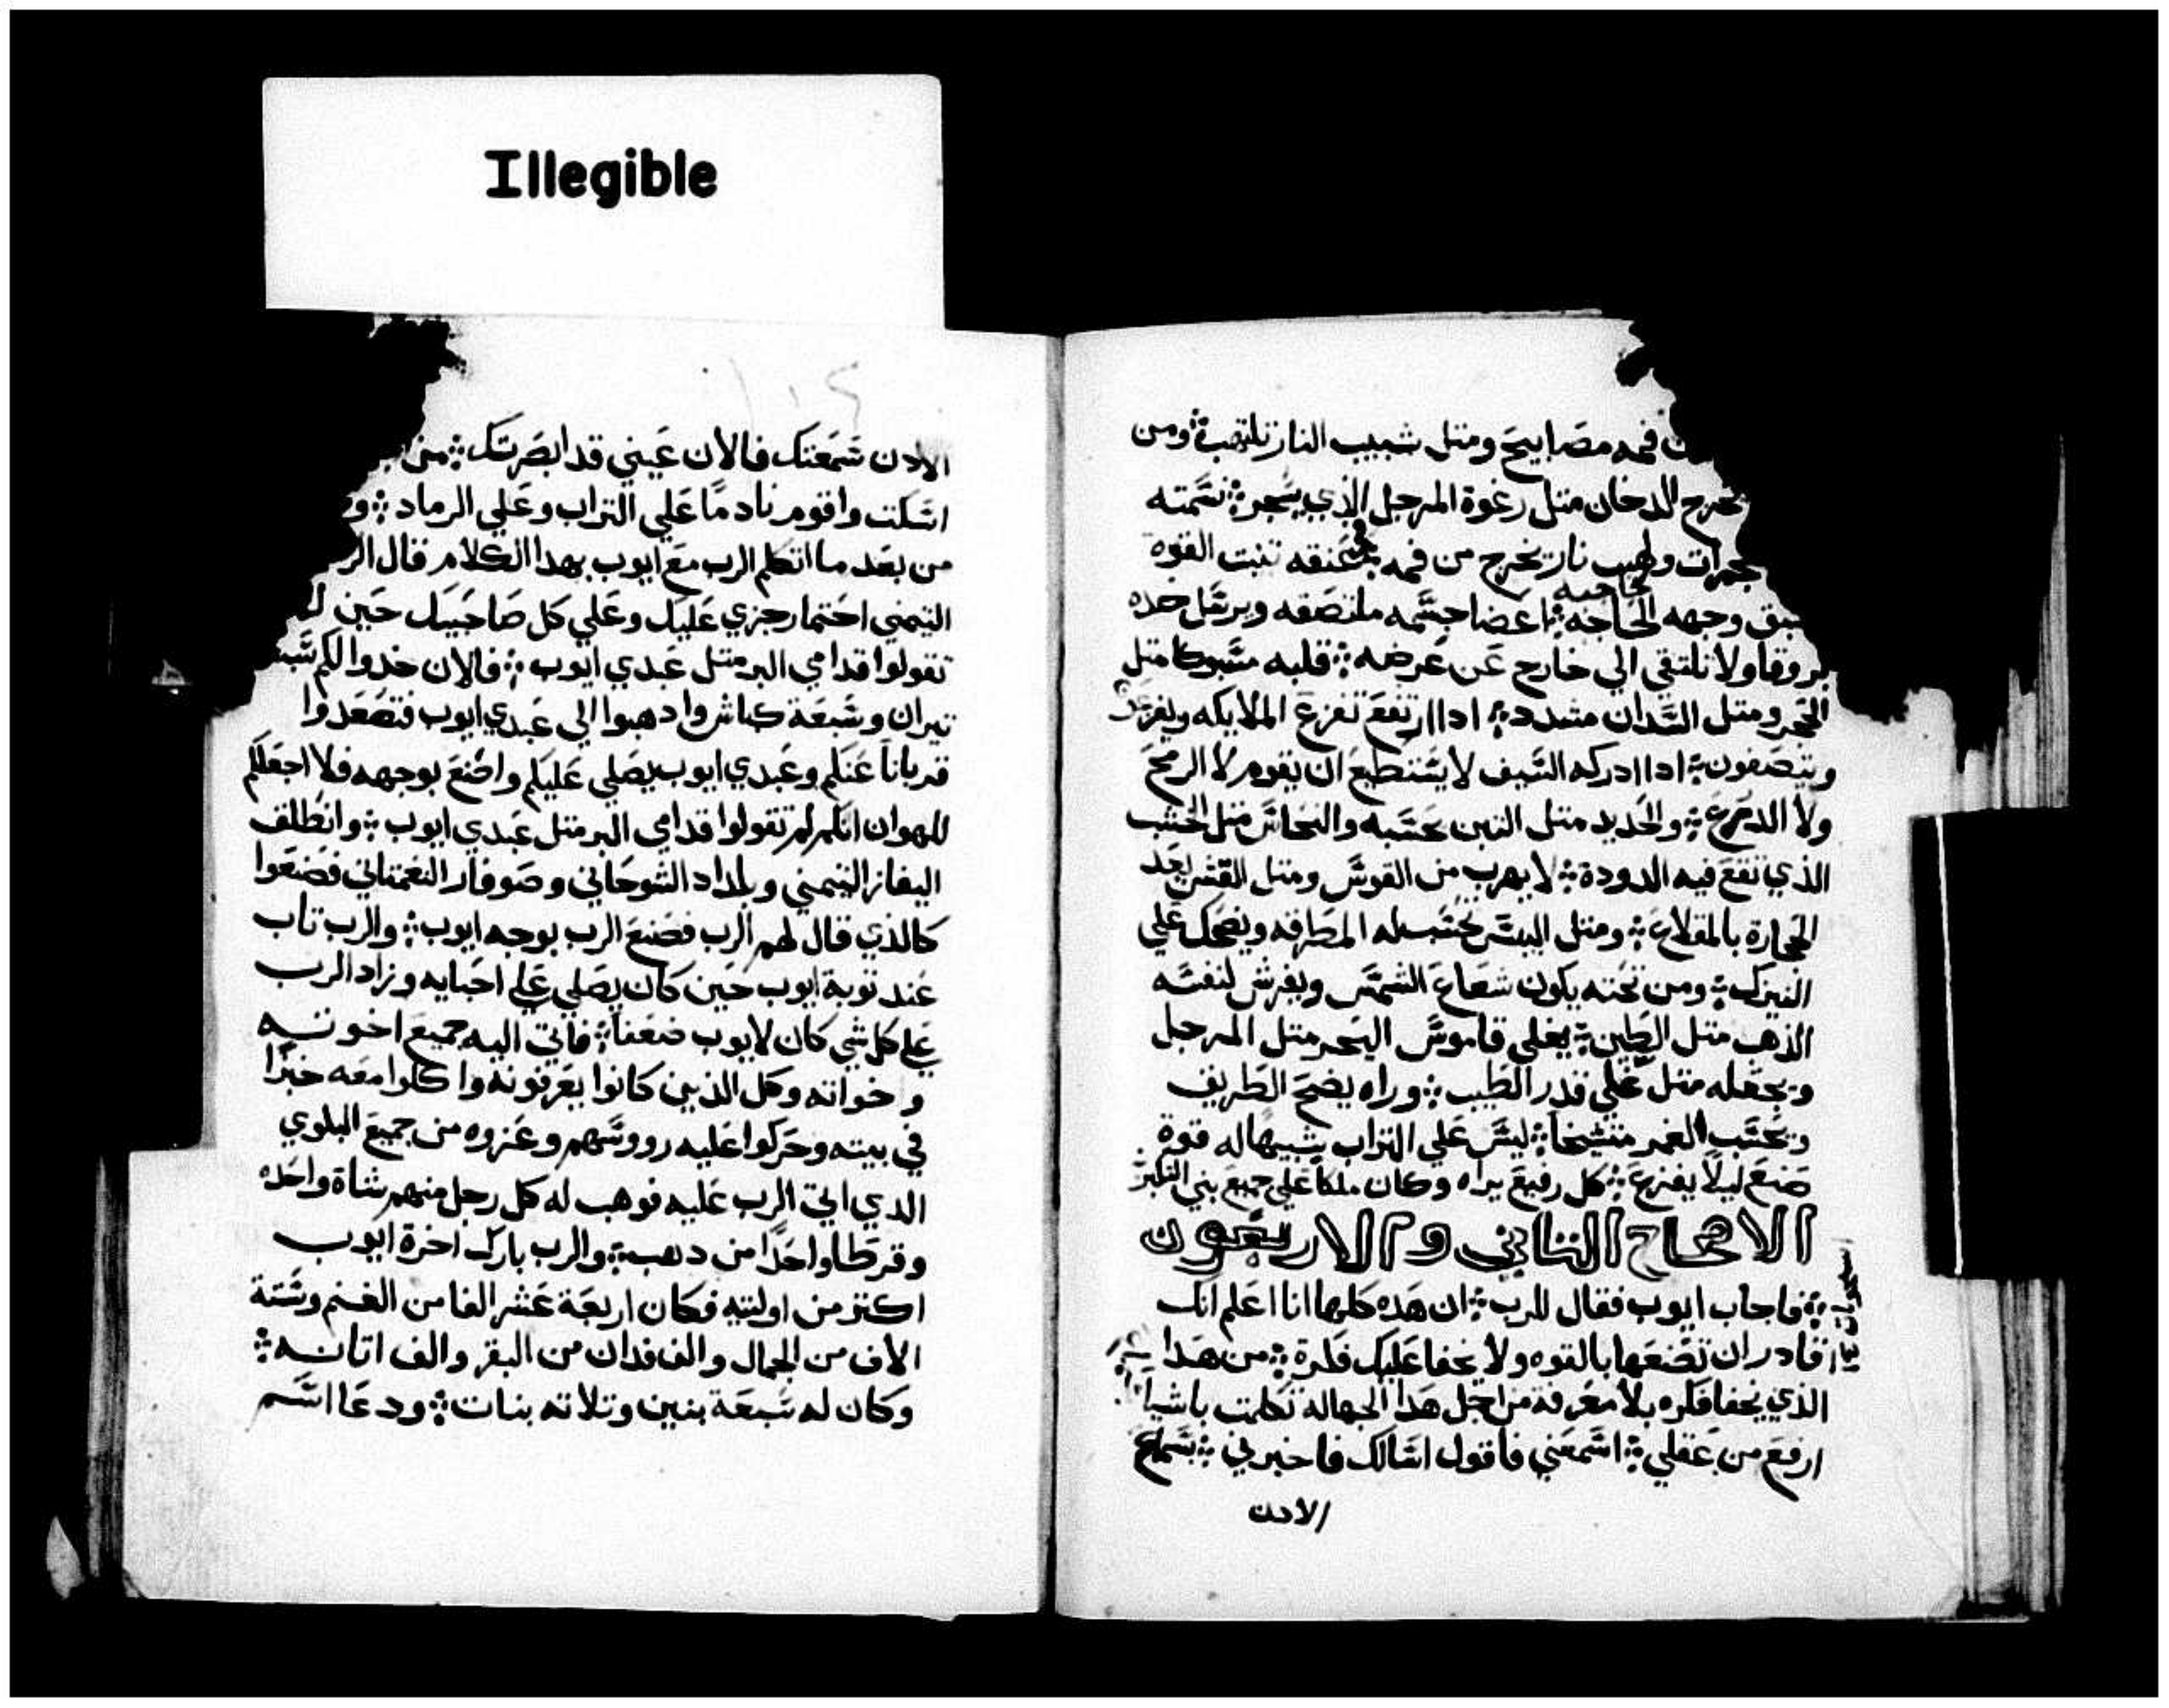 Illegible
فمه مصابيح ومتل شبيب النار تلتهب ومن
يخرج الدخان متل رغوة المرجل الذي يسجر نسمته
جمرات ولهيب نار تخرج من فمه عنقه تبت القوة
وجهه اعضا جسمه ملتصقه ويرسل حده
بروقا ولا تلتقي الي خارج عن عرضه قلبه مسبوكا متل
الحجر ومتل السندان مشدد اداارتفع تفزع الملايكه
ويتضعون اداادركه السيف لا يستطيع ان يقوم لا الرمح
ولا الدرع والحديد متل التبن يحسبه والنحاس متل الخشب
الذي تقع فيه الدودة لا يهرب من القوس ومتل القش يعد
الحجارة بالمقلاع ومتل اليبس تحسب له المطرقه ويضحك علي
النيزك ومن تحته يكون شعاع الشمس ويفرش لنفسه
الذهب متل الطين يغلي قاموس البحر متل المرجل
ويجعله متل غلي قدر الطيب وراه يضح الطريق
ويحسب الغمر متشيخا ليس علي التراب شبيها له قوة
صنع ليلا يفزع كل رفيع يراه وكان ملكا علي جميع بني التكبر
الاصحاح التاني والاربعون
فاجاب ايوب فقال للرب ان هده كلها انا اعلم انك
قادر ان تصنعها بالقوه ولا يخفا عليك فكرة من هدا
الذي يخفا فكره بلا معرفة من اجل هدا الجهاله تكلمت باشيا
ارفع من عقلي اسمعني فاقول اسالك فاخبرني بسماع
الادن
١٠٤
الادن سمعتك فالان عيني قد ابصرتك من
اسكت واقوم نادما علي التراب وعلي الرماد و
من بعد ما اتكلم الرب مع ايوب بهدا الكلام قال الر
التيمني احتما رجزي عليك وعلي كل صاحبيك حين لم
تقولوا قدامي البر متل عبدي ايوب فالان خدوا لكم
تيران وسبعة كباش وادهبوا الي عبدي ايوب فتصعدوا
قربانا عنكم وعبدي ايوب يصلي عليكم واصنع بوجهه فلا اجعلكم
للهوان انكم لم تقولوا قدامي البر متل عبدي ايوب وانطلق
اليفاز التيمني وبلداد الشوحاني وصوفار النعمتاني فصنعوا
كالذي قال لهم الرب فصنع الرب بوجه ايوب والرب تاب
عند توبة ايوب حين كان يصلي علي احبايه وزاد الرب
علي كل شي كان لايوب ضعفا فاتي اليه جميع اخوته
واخواته وكل الذين كانوا يعرفونه واكلوا معه خبزا
في بيته وحركوا عليه رووسهم وعزوه من جميع البلوي
الدي اتي الرب عليه فوهب له كل رجل منهم شاة واحده
وقرطا واحدا من دهب والرب بارك اخرة ايوب
اكتر من اوليته فكان اربعة عشر الفا من الغنم وستة
الاف من الجمال والف فدان من البقر والف اتانه
وكان له سبعة بنين وتلاته بنات ودعا اسم